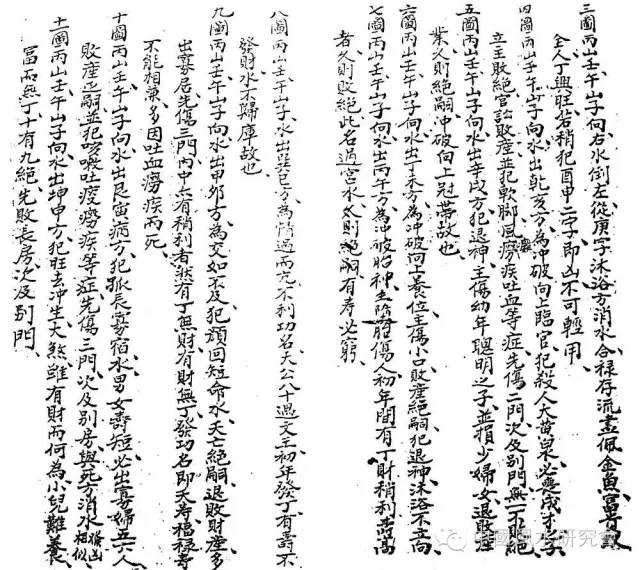 三圖丙山壬午山子向右水倒左從庚字沐浴方消水合祿存流盡佩金魚富貴双
全人丁興旺若稍犯酉申二字即凶不可輕用
四圖丙山壬午山子向水出乾亥方為冲破向上臨官犯殺人大黃泉必喪成才之子
立主敗絕官訟敗産並犯軟脚風癆疾吐血等症先傷二門次及別門無一不敗絕
五圖丙山壬午山子向水出辛戌方犯退神主傷幼年聰明之子並損少婦女退敗産
業久則絕嗣冲破向上冠帶故也
六圖丙山壬午山子向水出丁未方為冲破向上養位主傷小口敗産絕嗣犯退神沐浴不立向
七圖丙山壬午山子向水出丙午方為冲破胎神主墮胎傷人初年間有丁財稍利壽高
者久則敗絕此名過宮水久則絕嗣有壽必窮
八圖丙山壬午山子向水出巽巳方為情過而亢不利功名太公八十遇文王初年發丁有壽不
發財水不歸庫故也
九圖丙山壬午山子向水出甲卯方為交如不及犯顏回短命水夭亡絕嗣退敗財産多
出寡居先傷三門內中亦有稍利者然有丁無財有財無丁發功名即夭壽福祿壽
不能相兼多因吐血癆疾而死
十圖丙山壬午山子向水出艮寅病方犯孤辰寡宿水男女壽短必出寡婦五六人
敗産乏嗣並犯咳嗽吐痰癆疾等症先傷三門次及別房與死方消水發凶相似
十一圖丙山壬午山子向水出坤申方犯旺去冲生大煞雖有財而何為小兒難養
富而無丁十有九絕先敗長房次及別門
中國風水研究會